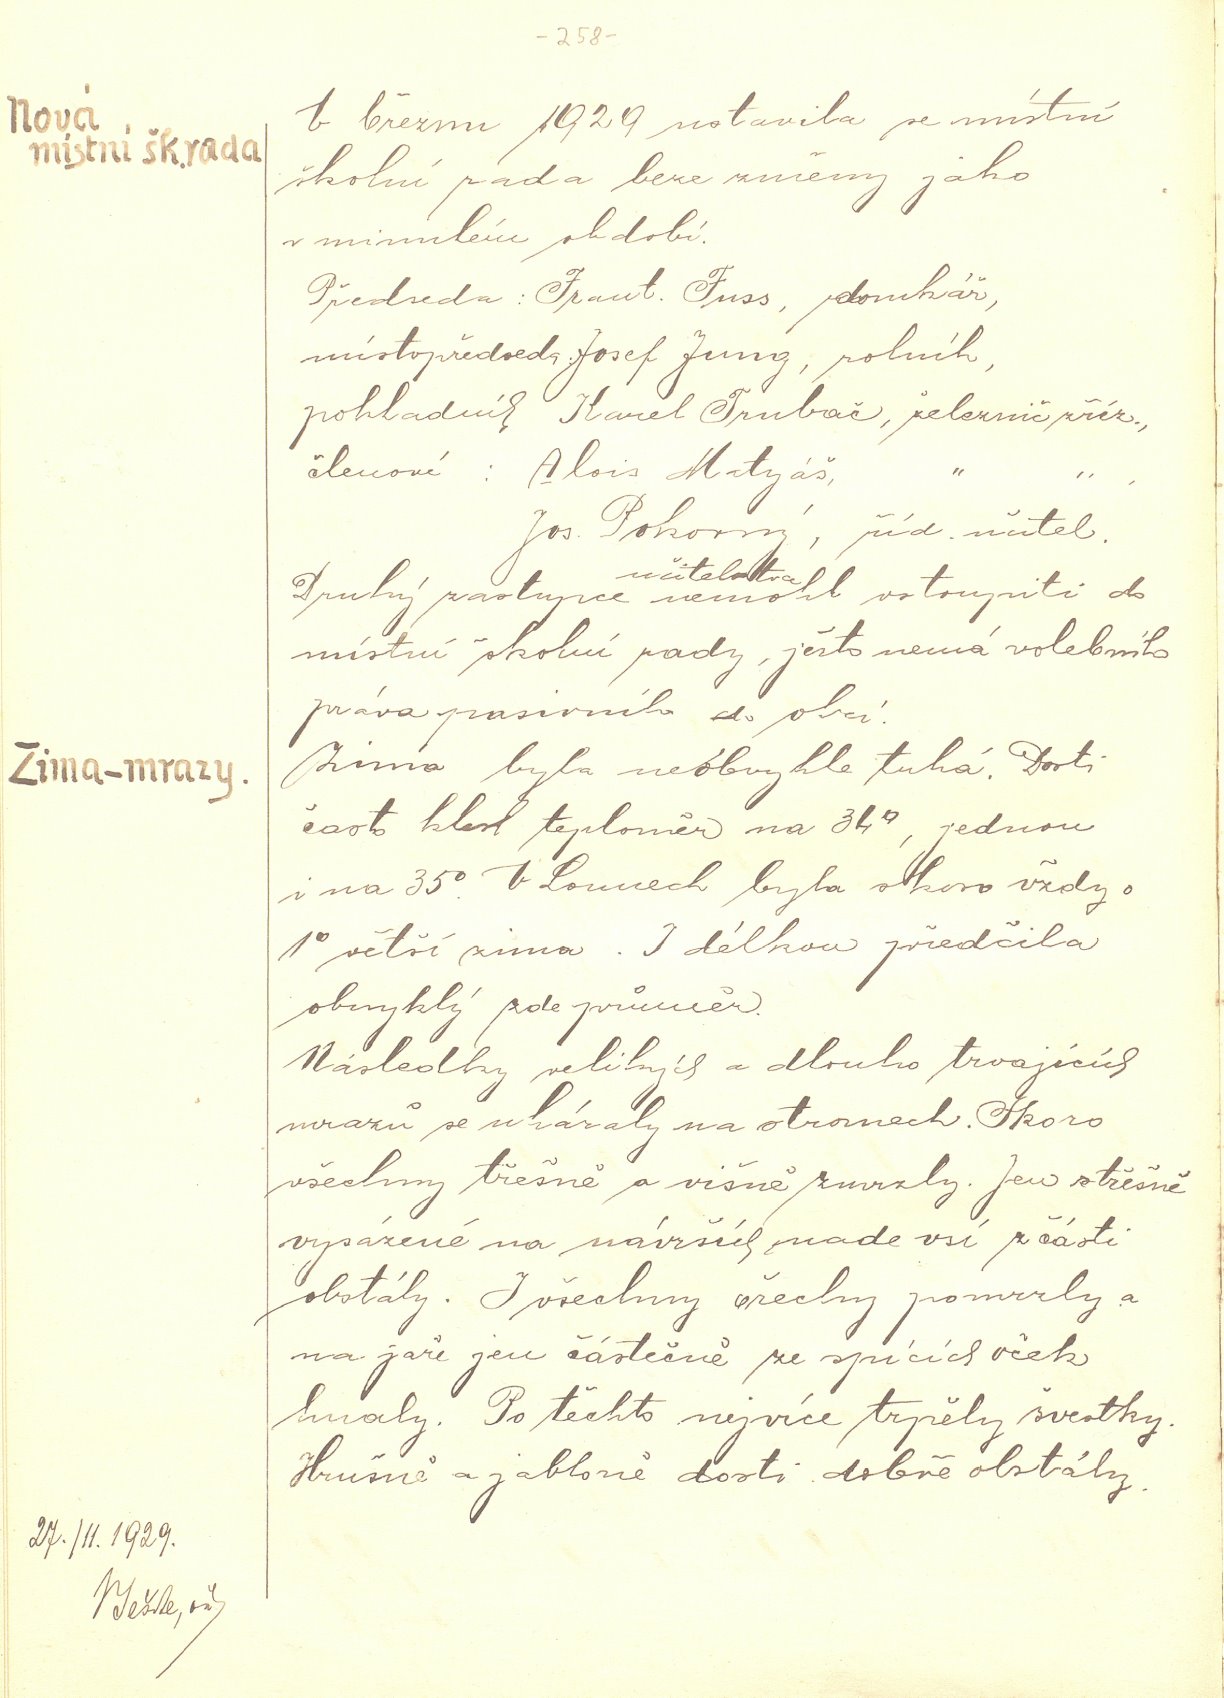 -258-
Nová
místní šk. rada
V březnu 1929 ustavila se místní
školní rada beze změny jako
v minulém období.
Předseda: Frant. Fuss, domkář,
místopředseda: Josef Jung, rolník,
pokladník Karel Trubač, železnič. zříz.,
členové : Alois Matyáš, " " ,
Jos. Pokorný, říd. učitel.
učitelstva
Druhý zástupce nemohl vstoupiti do
místní školní rady, ježto nemá volebního
práva pasivního do obcí.
Zima-mrazy.
Zima byla neobvykle tuhá. Dosti
často klesl teploměr na 34°, jednou
i na 35°. V Lounech byla skoro vždy o
1° větší zima. I délkou předčila
obvyklý zde průměr.
Následky velikých a dlouho trvajících
mrazů se ukázaly na stromech. Skoro
všechny třešně a višně zmrzly. Jen střešně
vysázené na návrších nade vsí z části
obstály. I všechny ořechy pomrzly a
na jaře jen částečně ze spících oček
hnaly. Po těchto nejvíce trpěly švestky.
Hrušně a jabloně dosti dobře obstály.
27./11. 1929.